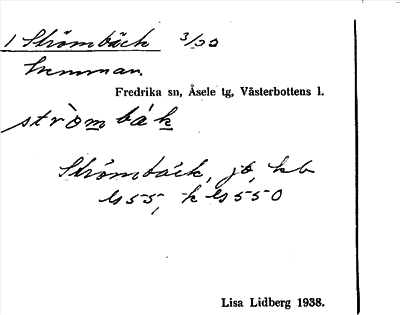 1 Strömbäck 3/30
hemman.
Fredrika sn, Åsele tg, Västerbottens l.
stròmbák
Strömbäck, jb, kb
ls 55, k ls 550
Lisa Lidberg 1938.